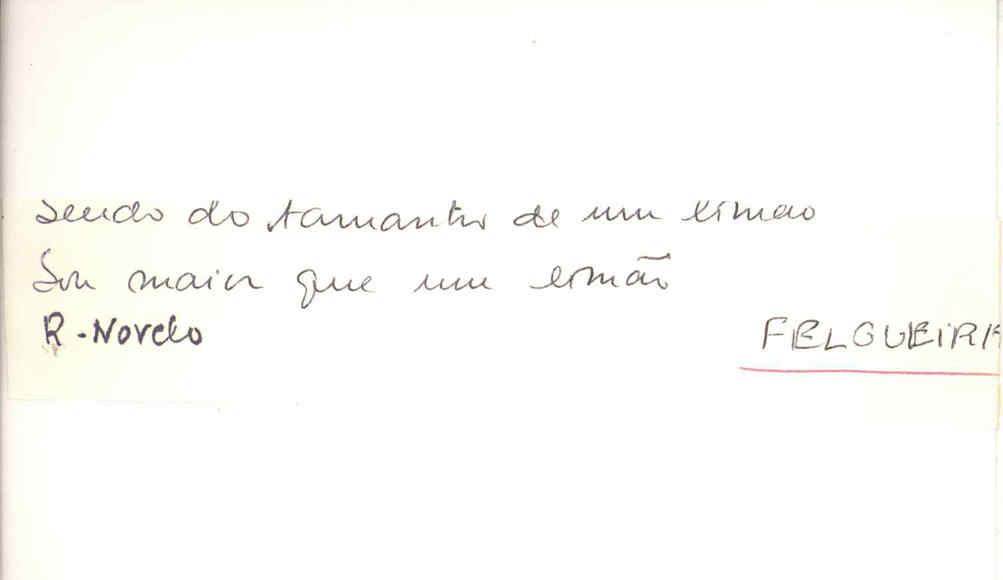 sendo do tamanho de um limão
Sou maior que um limão
R - Novelo
FELGUEIRA